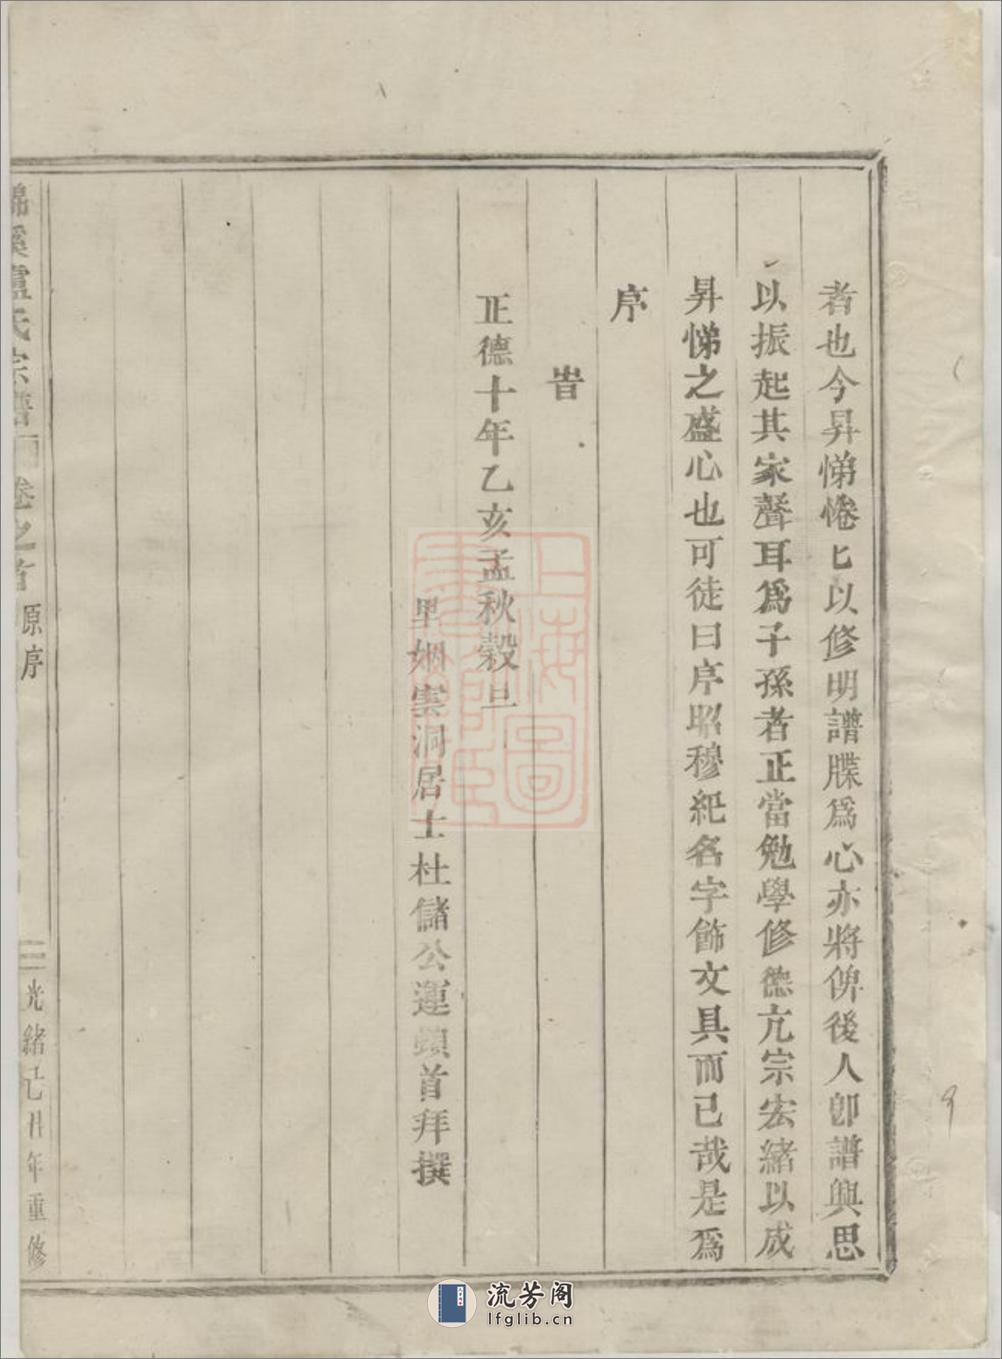 者也今昇悌惓匕以修明譜牒爲心亦將俾後人卽譜興思
以振起其家聲耳爲子孫者正當勉學修德亢宗宏緒以成
昇悌之盛心也可徒曰序昭穆紀名字飾文具而已哉是爲
序
旹
正德十年乙亥孟秋穀旦
里姻雲洞居士杜儲公運頭首拜撰
錦溪盧氏宗譜 卷之首 原序 三 光緒己丑年重修
上海圖書館藏
流芳阁
lfglib.cn